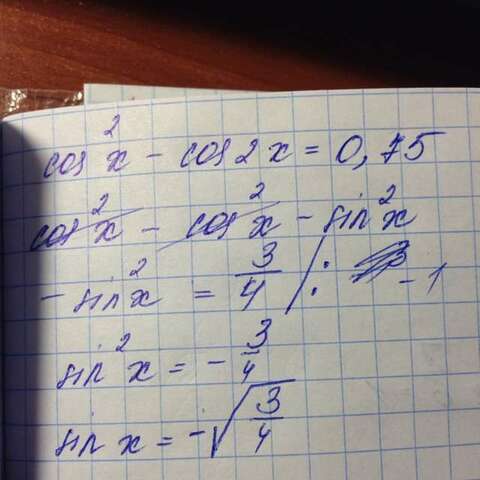 cos²x - cos2x = 0,75
cos²x - cos²x - sin²x
-sin²x = 3/4 /: -1
sin²x = -3/4
sin x = -√3/4